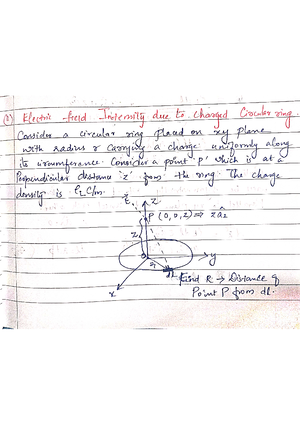 (2) Electric field Intensity due to charged Circular ring.
Consider a circular ring placed on xy plane
with radius r carrying a charge uniformly along
its circumference. Consider a point 'P' which is at a
Perpendicular distance 'z' from the ring. The charge
density is ρL C/m.
E
z
P (0,0,z) ⇒ z âz
z
y
r
dl
x
Find R → Distance of
Point P from dl.